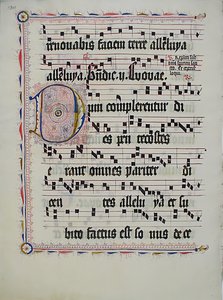 renovabis faciem terre alleluya
alleluya.
Dum complerentur di
es pen tecostes
e rant omnes pariter di
cen tes allelu ya et su
bito factus est so nus de ce